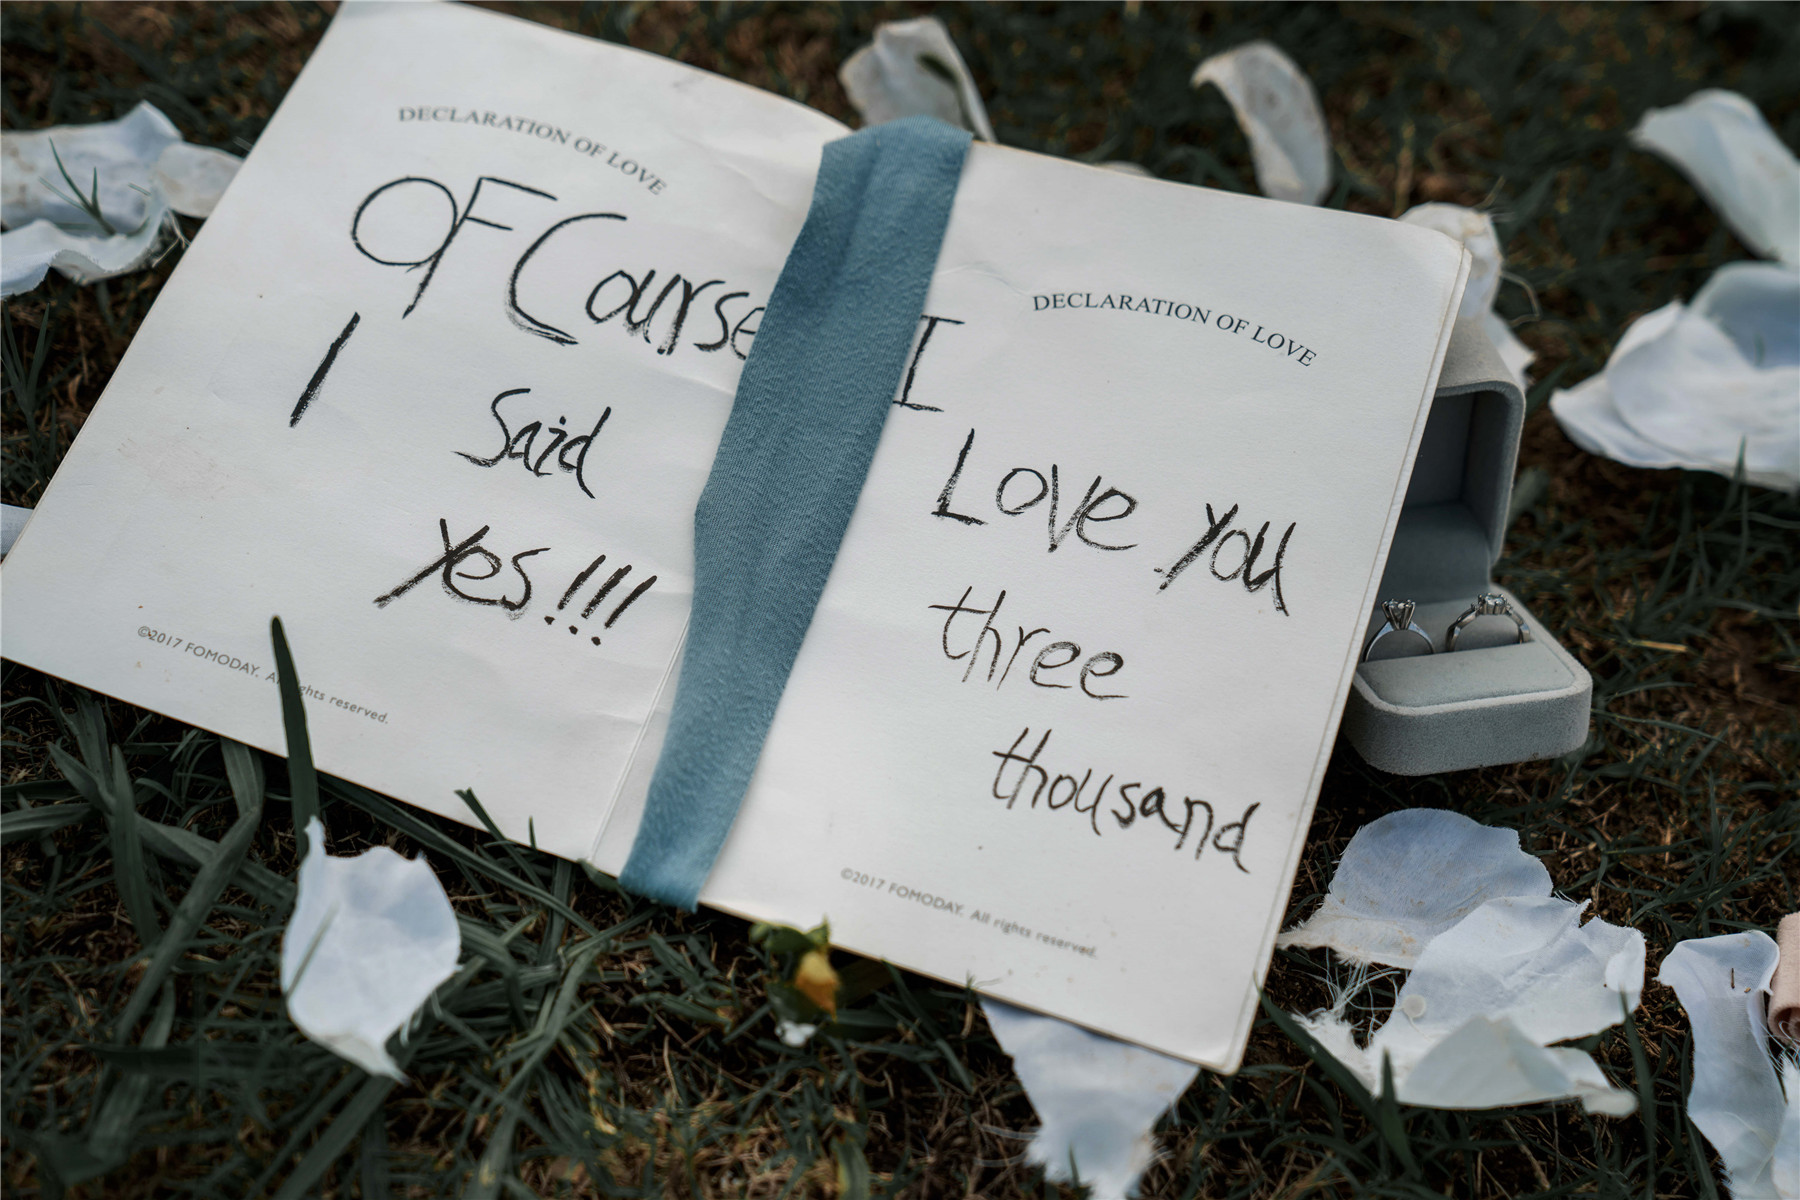 DECLARATION OF LOVE
OF Course
I
Said
Yes!!!
©2017 FOMODAY. All rights reserved.
DECLARATION OF LOVE
I
Love You
three
thousand
©2017 FOMODAY. All rights reserved.